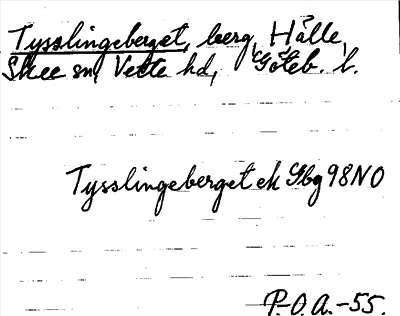 Tysslingeberget, berg, Hälle,
Skee sn, Vette hd, Göteb. l.
Tysslingeberget ek Gbg 98NO
P.-O.A.-55.